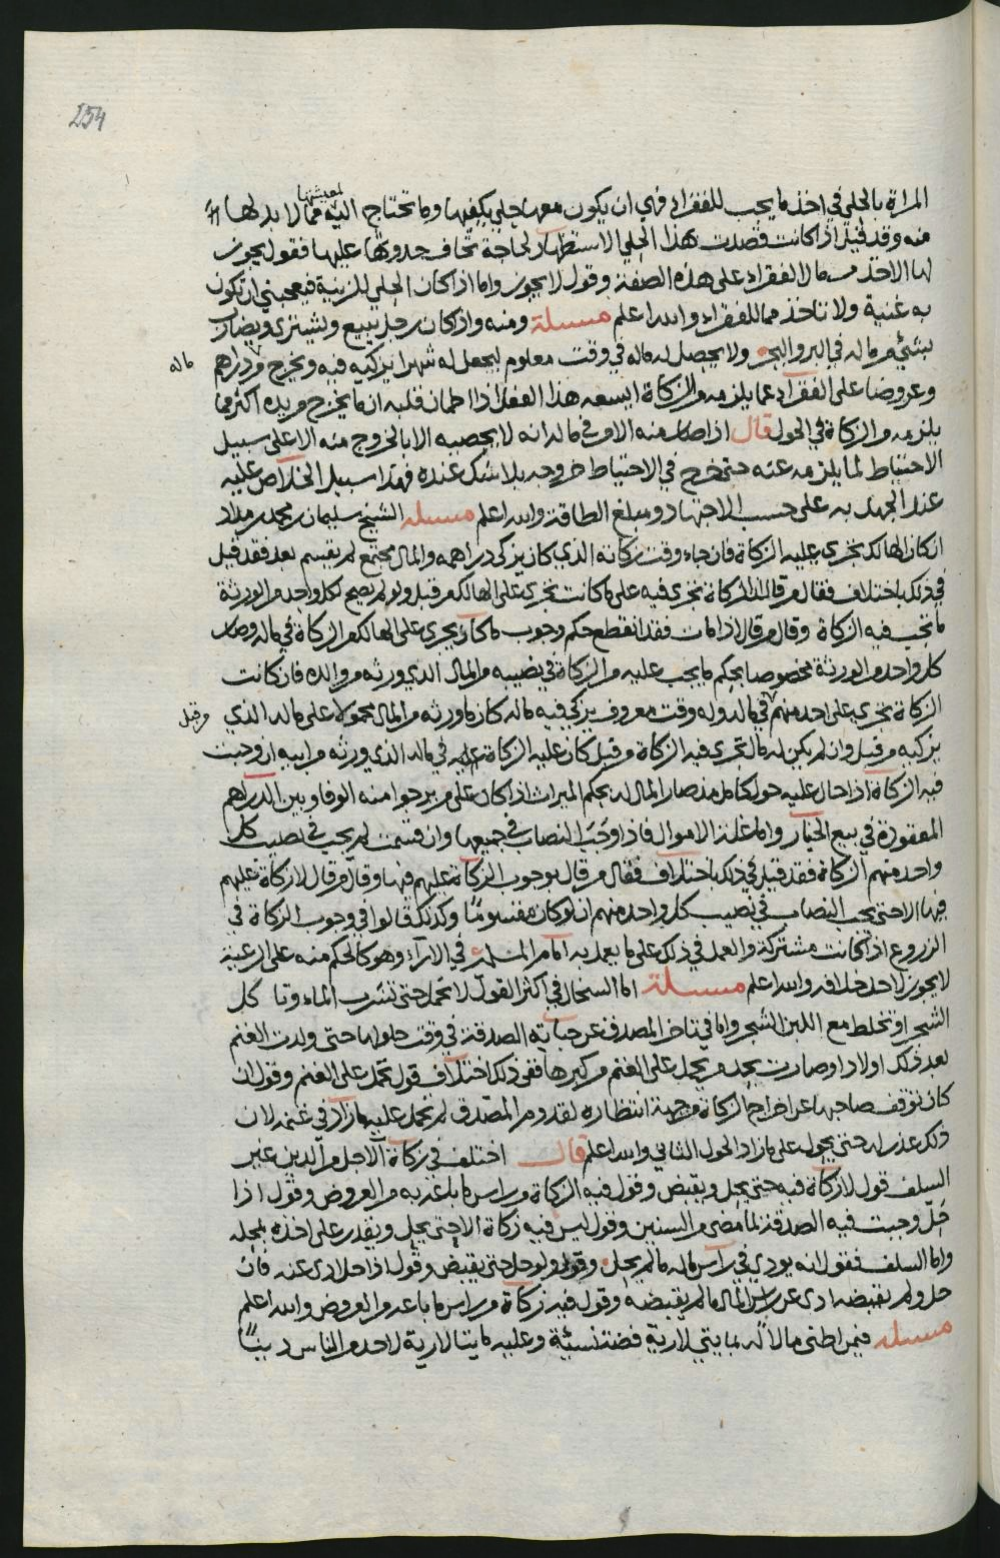 254
المراة بالحلي في اخذ ما يجب للفقراء فهي ان يكون معها حلي يكفيها وما تحتاج اليه لمعيشتها مما لا بد لها
منه وقد قيل اذا كانت قصدت بهذا الحلي الاستظهار لحاجة تخاف حدوثها عليها فقول يجوز
لها الاخذ من مال الفقراء على هذه الصفة وقول لا يجوز واما اذا كان الحلي للزينة فيعجبني ان تكون
به غنية ولا تاخذ مما للفقراء والله اعلم مسئلة ومنه واذا كان رجل يبيع ويشتري ويضارب
بشيء من ماله في البر والبحر ولا يحصل له ماله في وقت معلوم ليجعل له شهرا يزكيه فيه ويخرج من دراهم ماله
وعروضا على الفقراء عما يلزمه من الزكاة ايسعه هذا الفعل اذا اطمان قلبه ان ما يخرج من يده اكثر مما
يلزمه من الزكاة في الحول قال اذا صار منه الاوقي ماله انه لا يحصيه الا بالخروج منه الا على سبيل
الاحتياط لما يلزمه عنه حتى خرج في الاحتياط خروجه بلا شك عنده فهذا سبيل الخلاص عليه
عند الجهل به على حسب الاجتهاد ومبلغ الطاقة والله اعلم مسئله الشيخ سليمان بن محمد بن مداد
ان كان الهالك تجري عليه الزكاة فان جاء وقت زكاته الذي كان يزكي دراهمه والمال مجتمع لم يقسم بعد فقد قيل
في ذلك باختلاف فقال من قال ان الزكاة تجري فيه على ما كانت تجري على الهالك من قبل ولو لم يصح لكل واحد من الورثة
ما تجب فيه الزكاة وقال من قال اذا مات فقد انقطع حكم وجوب ما كان يجري على الهالك من الزكاة في ماله وصار
كل واحد من الورثة مخصوصا بحكم ما يجب عليه من الزكاة في نصيبه من المال الذي ورثه من والده فان كانت
الزكاة تجري على احد منهم في ماله وله وقت معروف يزكي فيه ماله كان ما ورثه من المال محمولا على ماله الذي من قبل
يزكيه من قبل وان لم يكن له مال تجري فيه الزكاة من قبل كان عليه الزكاة في ماله الذي ورثه من ابيه ان وجبت
فيه الزكاة اذا حال عليه حول كامل منذ صار المال له بحكم الميراث اذا كان على من يرجوا منه الوفا وبين الدراهم
المعقودة في بيع الخيار واما غلة الاموال فاذا وجب النصاب في جميعها وان قسمت لم يجب في نصيب كل
واحد منهم الزكاة فقد قيل في ذلك باختلاف فقال من قال بوجوب الزكاة عليهم فيها وقال من قال لا زكاة عليهم
فيها الا حتى يجب النصاب في نصيب كل واحد منهم ان لو كان مقسوما وكذلك قالوا في وجوب الزكاة في
الزروع اذا كانت مشتركة والعمل في ذلك على ما يعمل به امام المسلمين في الاراء وهو كالحكم منه على الرعية
لا يجوز لاحد خلافه والله اعلم مسئلة اما السخال في اكثر القول لا تحمل حتى تشرب الماء وتاكل
الشجر او تخلط مع اللبن الشجر واما في تاخر المصدق عن جباية الصدقة في وقت حلولها حتى ولدت الغنم
بعد ذلك اولادا وصارت بحد من يحمل على الغنم من كبرها ففي ذلك اختلاف قول تحمل على الغنم وقول ان
كان توقف صاحبها عن اخراج الزكاة من جهة انتظاره لقدوم المصدق لم تحمل عليه ما زاد في غنمه لان
ذلك عذر له حتى يحول على ما زاد الحول الثاني والله اعلم قال اختلف في زكاة الاجل من الدين غير
السلف قول لا زكاة فيه حتى يحل ويقبض وقول فيه الزكاة من راس ما باعه به من العروض وقول اذا
حل وجبت فيه الصدقة لما مضى من السنين وقول ليس فيه زكاة الا حتى يحل ويقدر على اخذه بمحله
واما السلف فقول انه يودي في راس ماله ما لم يحل وقول ولو حل حتى يقبض وقول اذا حل ادى عنه فان
حل ولم يقبضه ادى عن راس المال ما لم يقبضه وقول فيه زكاة من راس ما باعه من العروض والله اعلم
مسئله فيمن اطنى مالا له بمايتي لارية فضة نسيئة وعليه مايتا لارية لاحد من الناس دينا